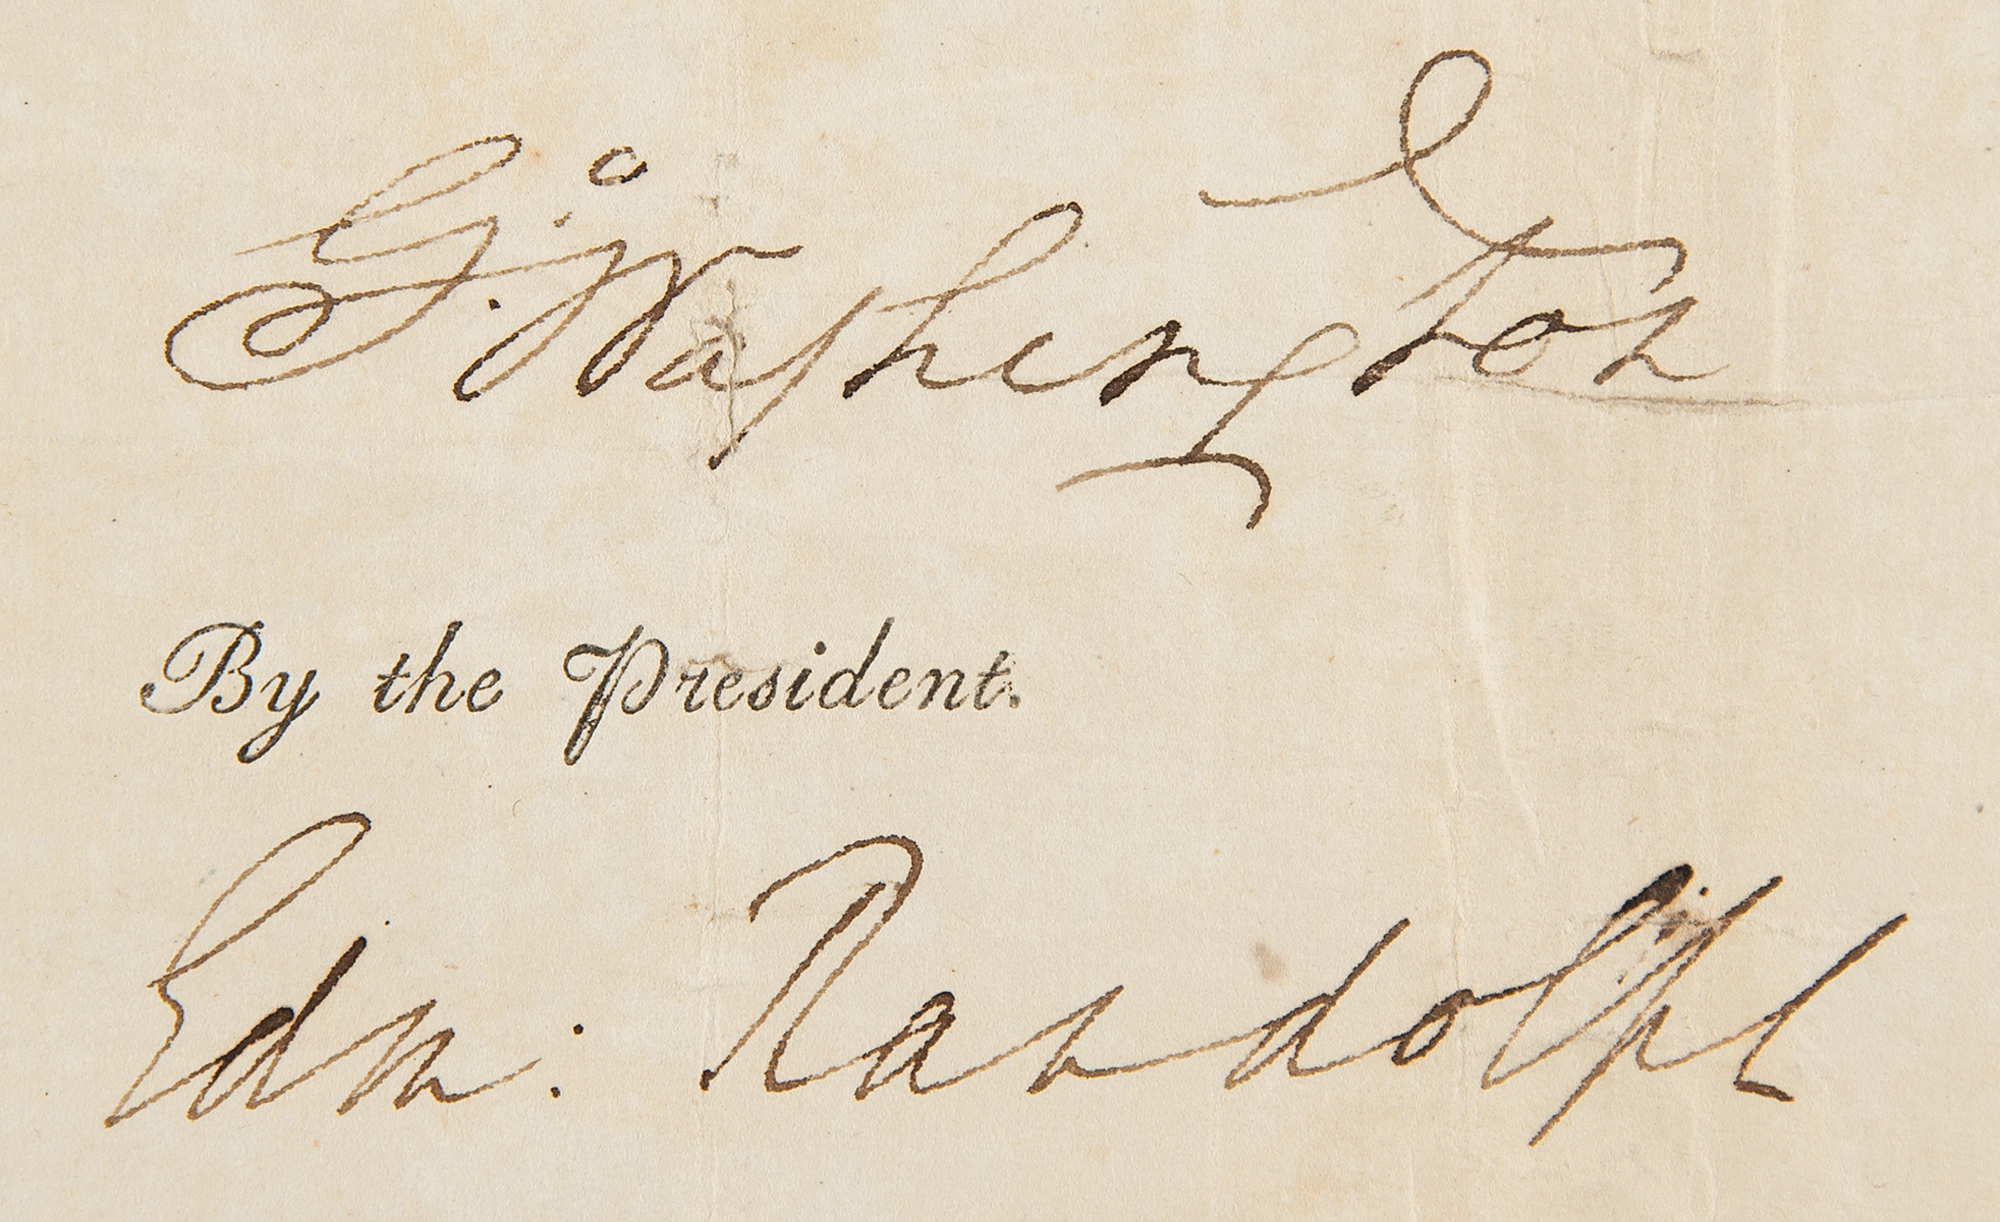 Go: Washington
By the President.
Edm: Randolph